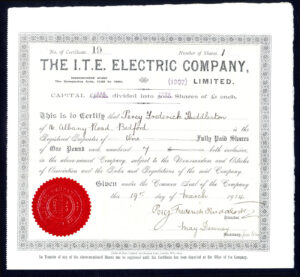 No. of Certificate 19 Number of Shares 1
THE I.T.E. ELECTRIC COMPANY,
(1907) LIMITED.
CAPITAL divided into Shares of £1 each.
This is to Certify that Percy Frederick Huddleston
of Albany Road, Bedford is the
Registered Proprietor of One Fully Paid Shares
of One Pound each, numbered 7 both inclusive
in the above-named Company, subject to the Memorandum and Articles
of Association and the Rules and Regulations of the said Company.
Given under the Common Seal of the Company
this 19th day of March 1914
Percy Frederick Huddleston
May
No Transfer of any of the above-mentioned Shares can be registered until this Certificate has been deposited at the Company's Office.